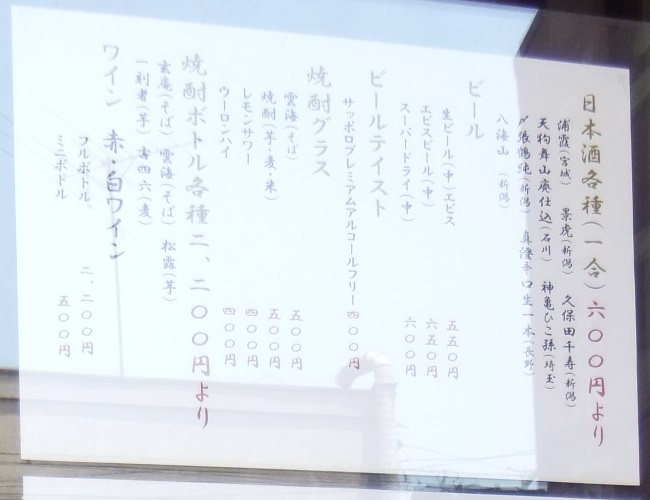 日本酒各種(一合)六〇〇円より
浦霞(宮城) 景虎(新潟) 久保田千寿(新潟)
天狗舞山廃仕込(石川) 神亀ひこ孫(埼玉)
〆張鶴純(新潟) 真澄辛口生一本(長野)
八海山(新潟)
ビール
生ビール(中)エビス 五五〇円
エビスビール(中) 六五〇円
スーパードライ(中) 六〇〇円
ビールテイスト
サッポロプレミアムアルコールフリー四〇〇円
焼酎グラス
雲海(そば) 五〇〇円
焼酎(芋・麦・米) 五〇〇円
レモンサワー 四〇〇円
ウーロンハイ 四〇〇円
焼酎ボトル各種二、二〇〇円より
玄庵(そば) 雲海(そば) 松露(芋)
一刻者(芋) 吉四六(麦)
ワイン 赤・白ワイン
フルボトル 二、二〇〇円
ミニボトル 五〇〇円